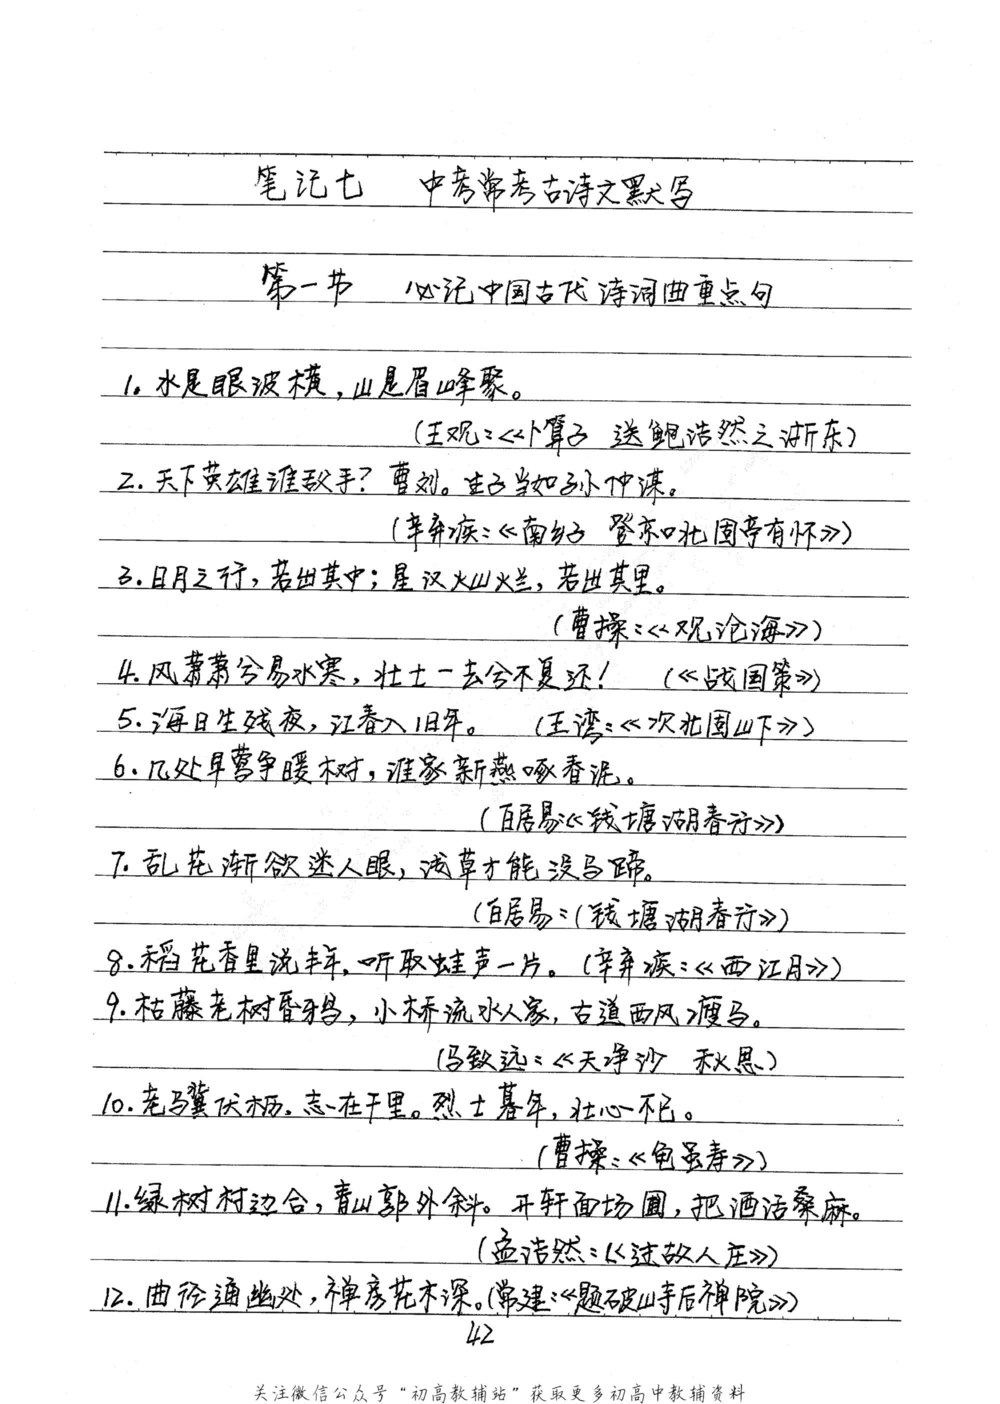 笔记七 中考常考古诗文默写
第一节 必记中国古代诗词曲重点句
1. 水是眼波横，山是眉峰聚。
(王观：《卜算子 送鲍浩然之浙东)
2. 天下英雄谁敌手？曹刘。生子当如孙仲谋。
(辛弃疾：《南乡子 登京口北固亭有怀》)
3. 日月之行，若出其中；星汉灿烂，若出其里。
(曹操：《观沧海》)
4. 风萧萧兮易水寒，壮士一去兮不复还！ (《战国策》)
5. 海日生残夜，江春入旧年。 (王湾：《次北固山下》)
6. 几处早莺争暖树，谁家新燕啄春泥。
(白居易《钱塘湖春行》)
7. 乱花渐欲迷人眼，浅草才能没马蹄。
(白居易：(钱塘湖春行》)
8. 稻花香里说丰年，听取蛙声一片。(辛弃疾：《西江月》)
9. 枯藤老树昏鸦，小桥流水人家，古道西风瘦马。
(马致远：《天净沙 秋思)
10. 老马冀伏枥，志在千里。烈士暮年，壮心不已。
(曹操：《龟虽寿》)
11. 绿树村边合，青山郭外斜。开轩面场圃，把酒话桑麻。
(孟浩然：《过故人庄》)
12. 曲径通幽处，禅房花木深。(常建：《题破山寺后禅院》)
42
关注微信公众号“初高教辅站”获取更多初高中教辅资料